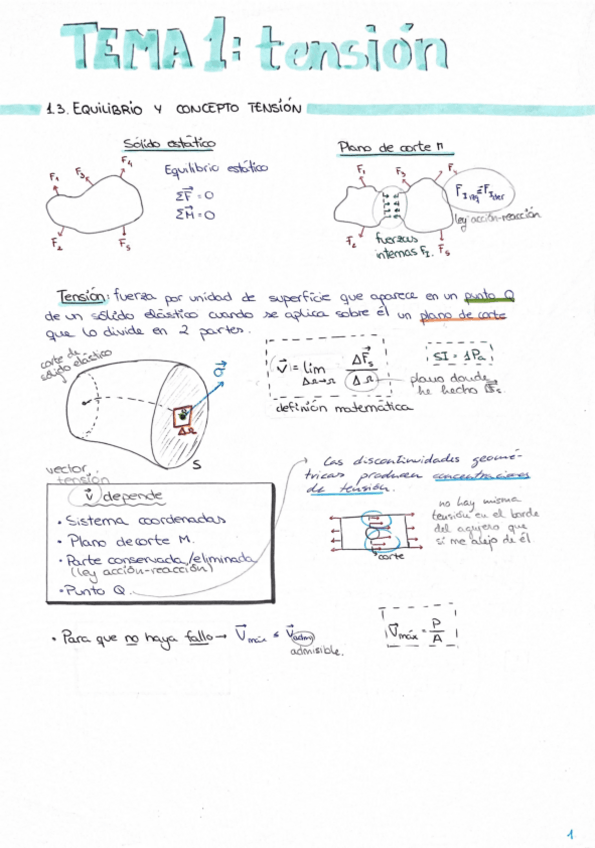 TEMA 1: tensión
1.3. EQUILIBRIO Y CONCEPTO TENSIÓN
Sólido estático
Plano de corte π
F₁ F₃ F₄
F₂ F₅
Equilibrio estático
ΣF⃗ = 0
ΣM⃗ = 0
F₁ F₃ F₄
F₂ F₅
ley acción-reacción
fuerzas
internas F_I.
Tensión: fuerza por unidad de superficie que aparece en un punto Q
de un sólido elástico cuando se aplica sobre él un plano de corte
que lo divide en 2 partes.
corte de
sólido elástico
σ⃗
ΔΩ
S
σ⃗ = lim ΔF⃗s / ΔΩ
ΔΩ→0
definión matemática
SI = 1Pa
plano donde
he hecho F⃗s.
vector
tensión
σ⃗ depende
• Sistema coordenadas
• Plano de corte M.
• Parte conservada/eliminada
(ley acción-reacción)
• Punto Q.
Las discontinuidades geomé-
tricas producen concentraciones
de tensión.
corte
no hay misma
tensión en el borde
del agujero que
si me alejo de él.
• Para que no haya fallo → σ⃗máx ≤ σ⃗adm
admisible.
σ⃗máx = P/A
1